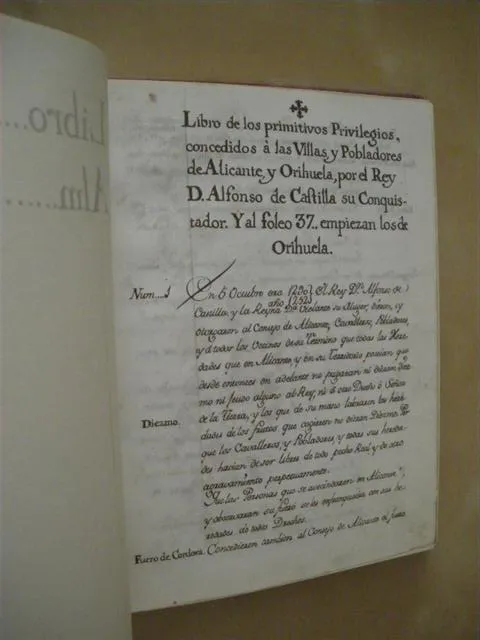 Libro....
Alm......
✠
Libro de los primitivos Privilegios,
concedidos à las Villas, y Pobladores
de Alicante, y Orihuela, por el Rey
D. Alfonso de Castilla su Conquis-
tador. Y al foleo 37.. empiezan los de
Orihuela.
Num...1 En 6 Octubre era 1290, El Rey Dn. Alfonso de
año 1252
Castilla, y la Reyna Da. Violante su Muger, dieron, y
otorgaron al Consejo de Alicante, Cavalleros, Pobladores,
y á todos los Vecinos de su Termino que todas las Here-
dades que en Alicante, y en su Territorio posean que
desde entonces en adelante no pagaran ni dieran Diez-
mo ni feudo alguno al Rey, ni á otro Dueño ó Señor
de la Tierra, y los que de su mano labraren los here-
Diezmo. dades de los frutos que cogieren no dieran Diezmo. Y
que los Cavalleros, y Pobladores, y todas sus hereda-
des havian de ser libres de todo pecho Real, y de otro
agravamiento perpetuamente.
Que las Personas que se avecindaren en Alicante,
y observaran su fuero se les enfranquezca con sus he-
redades de todos Drechos.
Fuero de Cordova. Concedieron tambien al Consejo de Alicante el fuero